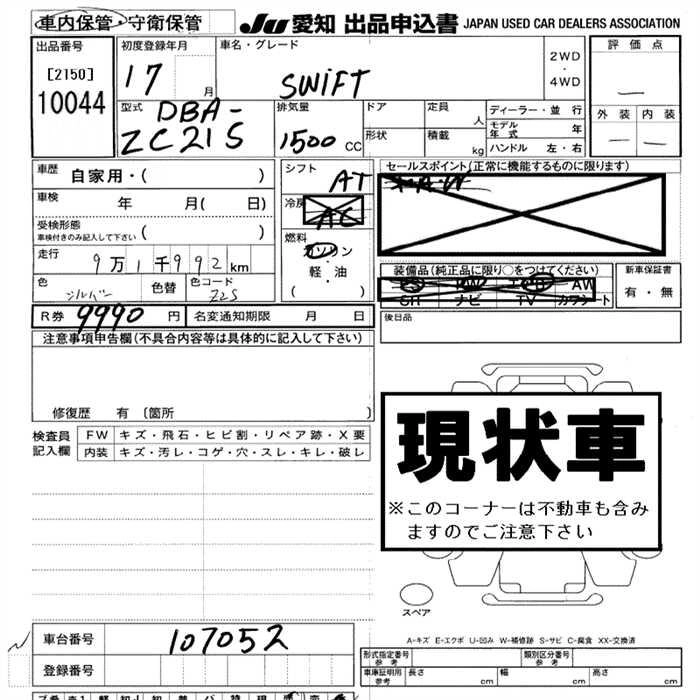 車内保管・守衛保管 JU 愛知 出品申込書 JAPAN USED CAR DEALERS ASSOCIATION
出品番号 初度登録年月 車名・グレード 評価点
[2150]
10044
17 月 SWIFT 2WD・4WD —
外装 内装
— —
型式 DBA-ZC21S 排気量 1500 CC ドア 定員 人 ディーラー・並行
形状 積載 kg モデル年式 年
ハンドル 左・右
車歴 自家用・( ) シフト AT セールスポイント(正常に機能するものに限ります)
車検 年 月( 日) 冷房 AC
A・W
受検形態
車検付きのみ記入して下さい ( ) 燃料 ガソリン・軽・油 ( )
走行 9万1千992km
装備品(純品に限り○をつけてください) 新車保証書
PS PW エアB AW 有・無
SR ナビ TV カワシート
色 シルバー 色替 色コード Z2S
後日品
R券 9990 円 名変通知期限 月 日
注意事項申告欄(不具合内容等は具体的に記入して下さい)
修復歴 有〔箇所 〕
現状車
※このコーナーは不動車も含みますのでご注意下さい
検査員記入欄 FW キズ・飛石・ヒビ割・リペア跡・X要
内装 キズ・汚レ・コゲ・穴・スレ・キレ・破レ
スペア
A-キズ E-エクボ U-凹み W-補修跡 S-サビ C-腐食 XX-交換済
車台番号 107052
登録番号
形式指定番号 参考 類別区分番号 参考
車庫証明用 参考 長さ cm 幅 cm 高さ cm